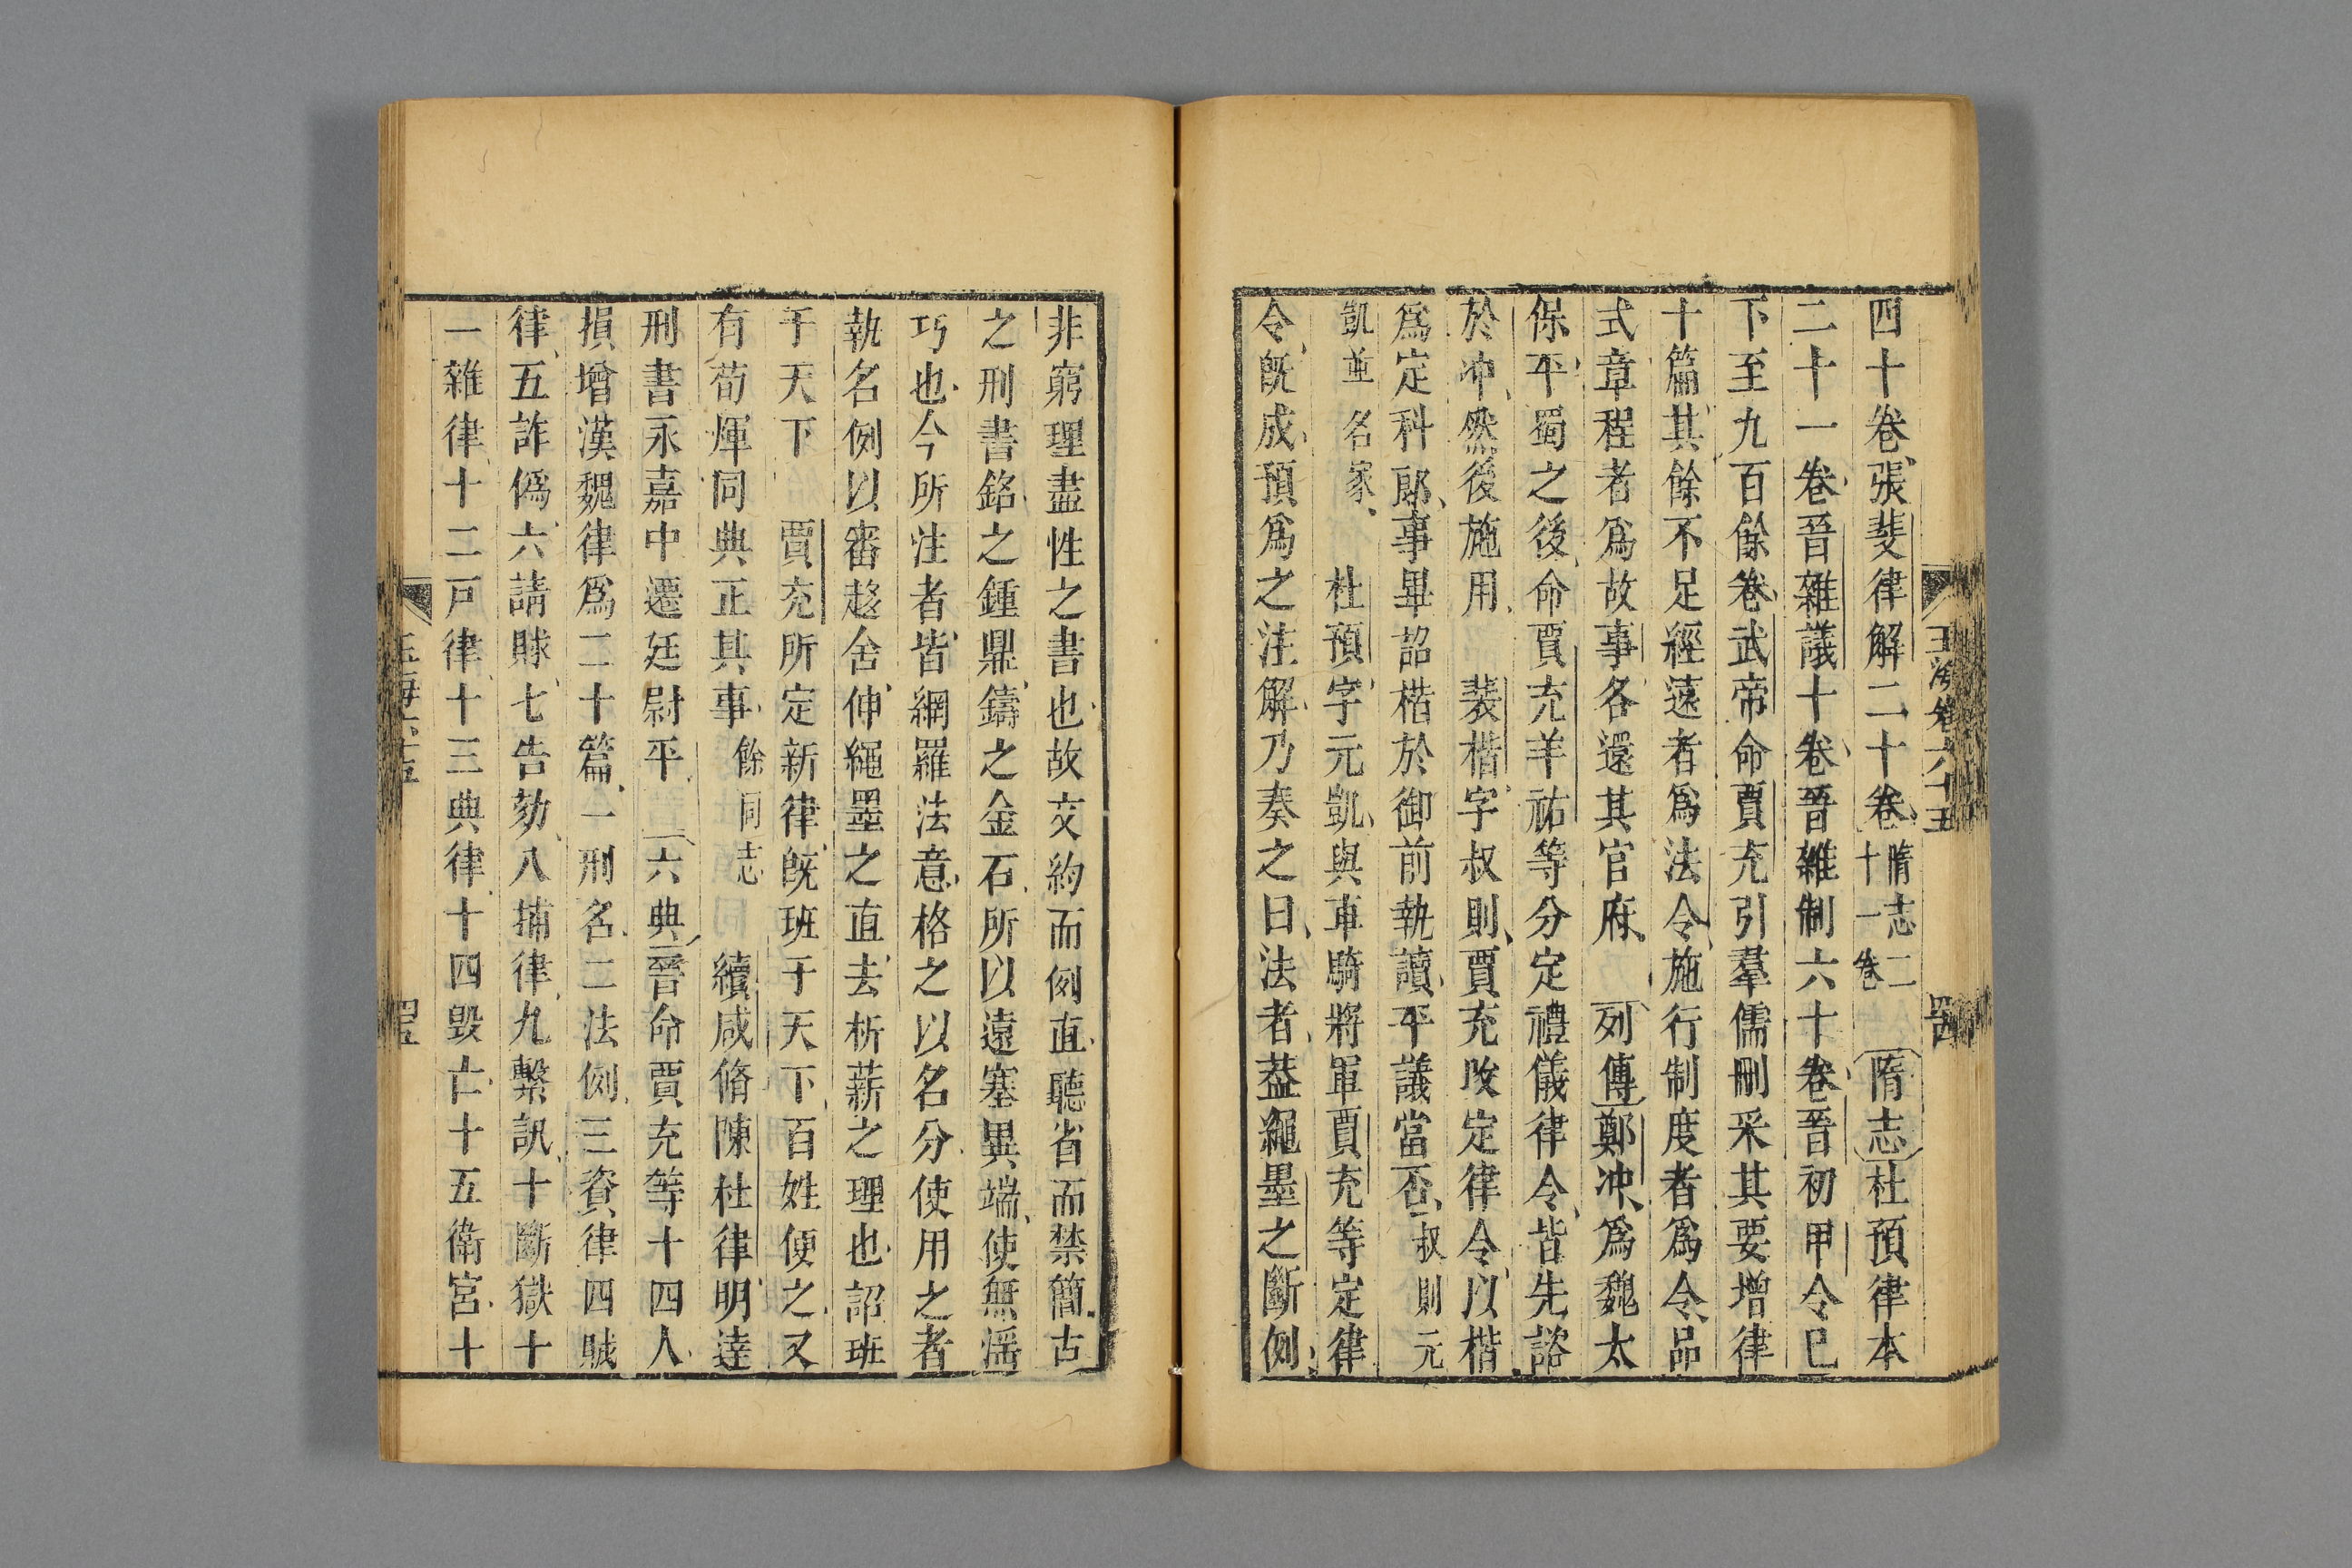 四十卷張斐律解二十卷隋志二十一卷隋志杜預律本
二十一卷晉雜議十卷晉雜制六十卷晉初甲令已
下至九百餘卷武帝命賈充引羣儒刪采其要增律
十篇其餘不足經遠者爲法令施行制度者爲令品
式章程者爲故事各還其官府列傳鄭冲爲魏太
保平蜀之後命賈充羊祜等分定禮儀律令皆先諮
於冲然後施用裴楷字叔則賈充改定律令以楷
爲定科郎事畢詔楷於御前執讀平議當否叔則元
凱並名家杜預字元凱與車騎將軍賈充等定律
令旣成預爲之注解乃奏之曰法者葢繩墨之斷例
非窮理盡性之書也故文約而例直聽省而禁簡古
之刑書銘之鍾鼎鑄之金石所以遠塞異端使無淫
巧也今所注者皆網羅法意格之以名分使用之者
執名例以審趍舍伸繩墨之直去析薪之理也詔班
于天下賈充所定新律旣班于天下百姓便之又
有荀煇同典正其事餘同志續咸脩陳杜律明達
刑書永嘉中遷廷尉平六典晉命賈充等十四人
損增漢魏律爲二十篇一刑名二法例三資律四賊
律五詐僞六請賕七告劾八捕律九繫訊十斷獄十
一雜律十二戸律十三典律十四毀亡十五衛宮十
玉海卷六十五